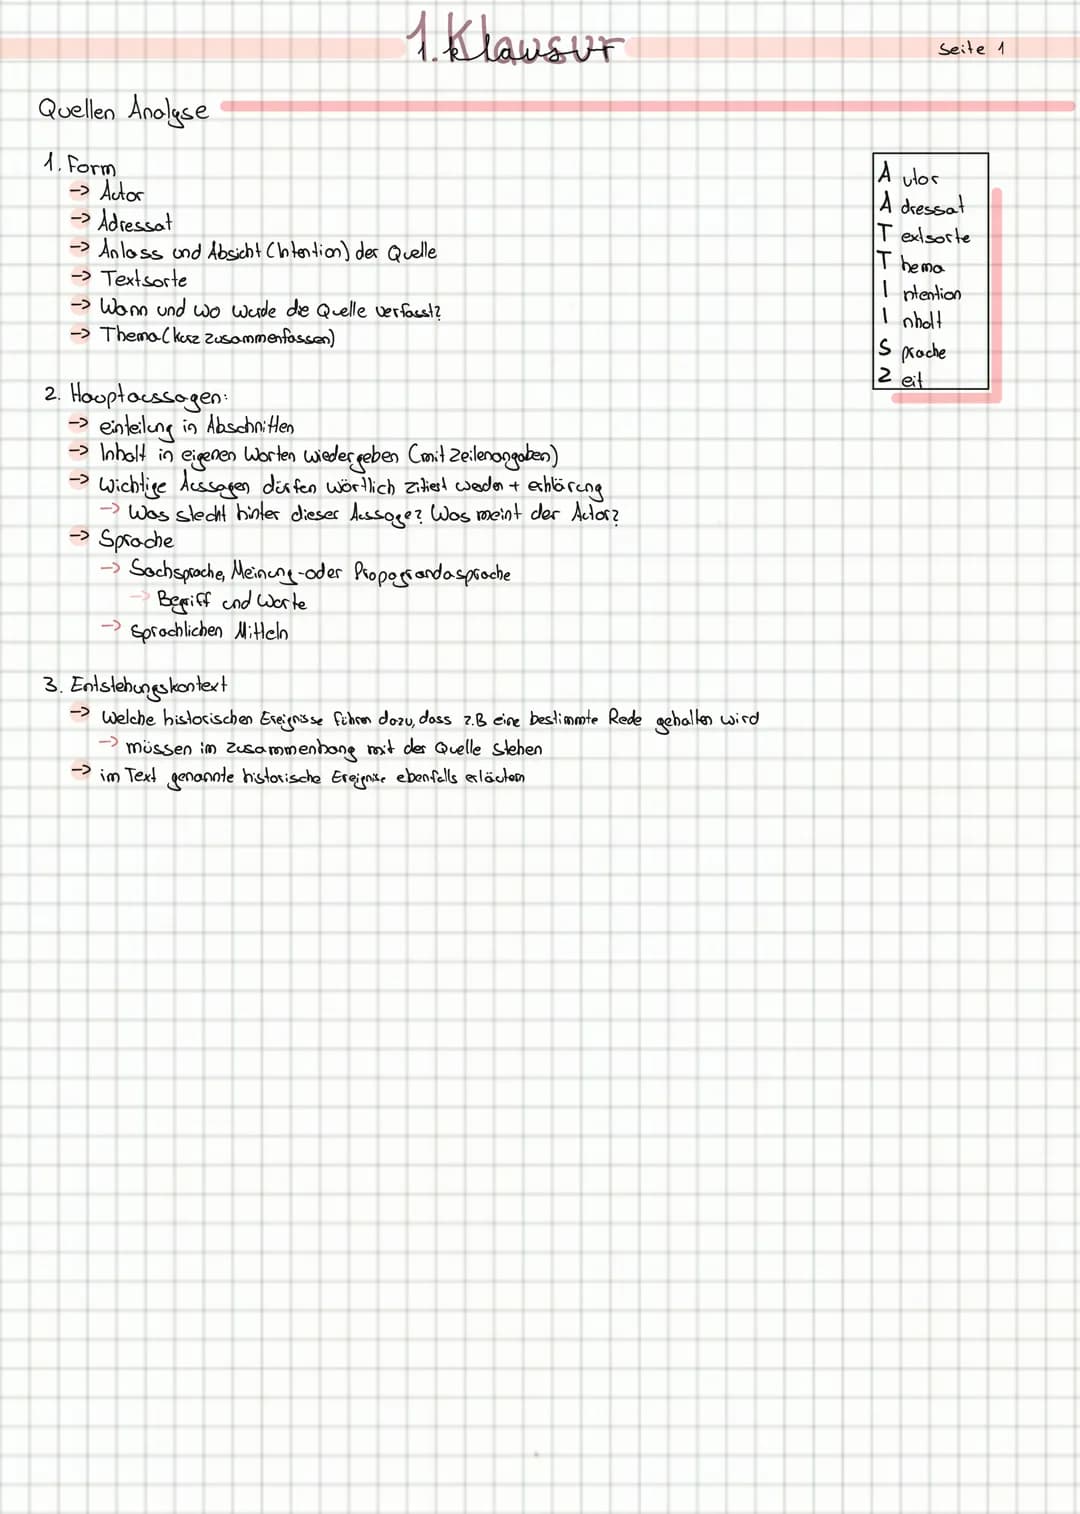 1. Klausur
Seite 1
Quellen Analyse
1. Form
-> Autor
-> Adressat
-> Anlass und Absicht (Intention) der Quelle
-> Textsorte
-> Wann und wo wurde die Quelle verfasst?
-> Thema (kurz zusammenfassen)
A utor
A dressat
T extsorte
T hema
I ntention
I nhalt
S prache
Z eit
2. Hauptaussagen:
-> einteilung in Abschnitten
-> Inhalt in eigenen Worten wiedergeben (mit Zeilenangaben)
-> Wichtige Aussagen dürfen wörtlich zitiert werden + erklärung
-> Was steckt hinter dieser Aussage? Was meint der Autor?
-> Sprache
-> Sachsprache, Meinung-oder Propagandasprache
-> Begriff und Worte
-> Sprachlichen Mitteln
3. Entstehungskontext
-> Welche historischen Ereignisse führen dazu, dass z.B eine bestimmte Rede gehalten wird
-> müssen im zusammenhang mit der Quelle stehen
-> im Text genannte historische Ereignise ebenfalls erläutern